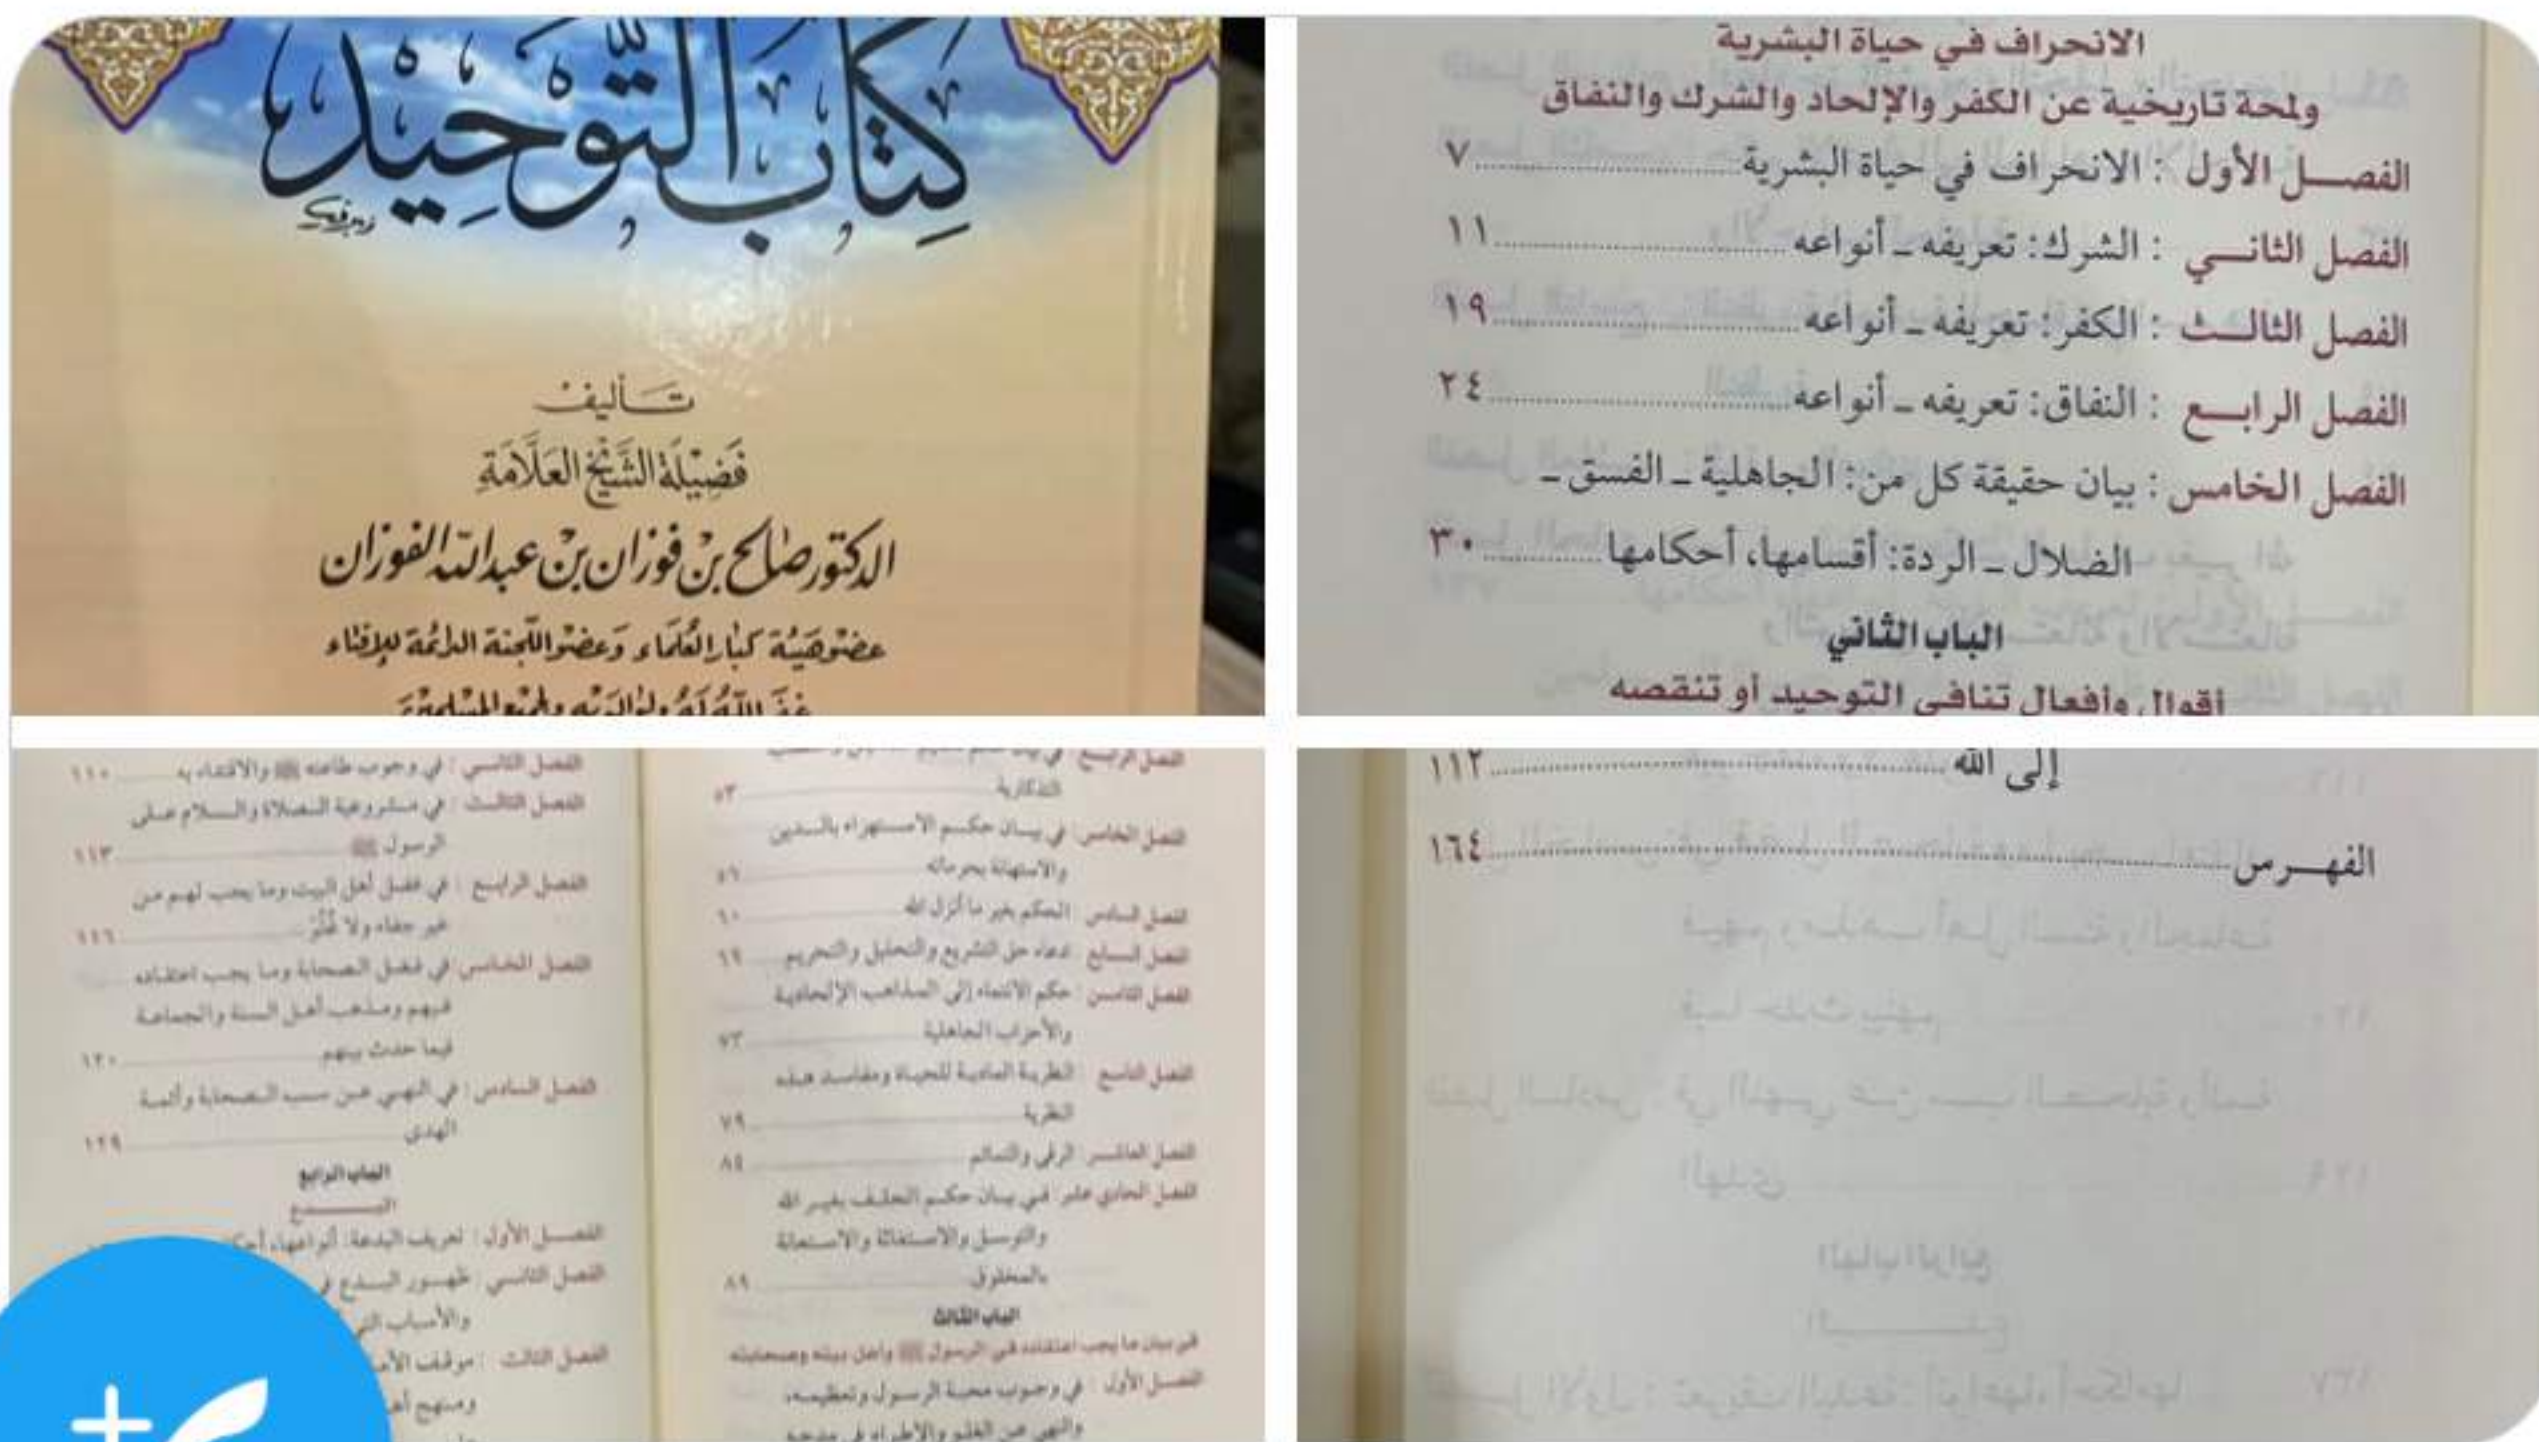 كِتَابُ التَّوْحِيْدِ
تأليف
فَضِيْلَة الشَّيْخ العَلَّامَةِ
الدكتور صالح بن فوزان بن عبد الله الفوزان
عضو هَيئَة كبَار العُلَمَاء وَعضو اللّجنة الدائمَة للإفتاء
غفَر اللَّهُ لَهُ ولوَالديْهِ ولجميْع المسْلميْنَ
الانحراف في حياة البشرية
ولمحة تاريخية عن الكفر والإلحاد والشرك والنفاق
الفصل الأول : الانحراف في حياة البشرية ٧
الفصل الثاني : الشرك: تعريفه ـ أنواعه ١١
الفصل الثالث : الكفر: تعريفه ـ أنواعه ١٩
الفصل الرابع : النفاق: تعريفه ـ أنواعه ٢٤
الفصل الخامس : بيان حقيقة كل من: الجاهلية ـ الفسق ـ
الضلال ـ الردة: أقسامها، أحكامها ٣٠
الباب الثاني
أقوال وأفعال تنافي التوحيد أو تنقصه
التذكارية ٥٣
الفصل الخامس : في بيان حكم الاستهزاء بالدين
والاستهانة بحرماته ٥٦
الفصل السادس : الحكم بغير ما أنزل الله ٦٠
الفصل السابع : ادعاء حق التشريع والتحليل والتحريم ٦٩
الفصل الثامن : حكم الانتماء إلى المذاهب الإلحادية
والأحزاب الجاهلية ٧٣
الفصل التاسع : النظرية المادية للحياة ومفاسد هذه
النظرية ٧٩
الفصل العاشر : الرقى والتمائم ٨٤
الفصل الحادي عشر : في بيان حكم الحلف بغير الله
والتوسل والاستغاثة والاستعانة
بالمخلوق ٨٩
الباب الثالث
في بيان ما يجب اعتقاده في الرسول ﷺ وأهل بيته وصحابته
الفصل الأول : في وجوب محبة الرسول وتعظيمه،
والنهي عن الغلو والإطراء في مدحه
الفصل الثاني : في وجوب طاعته ﷺ والاقتداء به ١١٠
الفصل الثالث : في مشروعية الصلاة والسلام على
الرسول ﷺ ١١٣
الفصل الرابع : في فضل أهل البيت وما يجب لهم من
غير جفاء ولا غُلُوّ ١١٦
الفصل الخامس : في فضل الصحابة وما يجب اعتقاده
فيهم ومذهب أهل السنة والجماعة
فيما حدث بينهم ١٢٠
الفصل السادس : في النهي عن سب الصحابة وأئمة
الهدى ١٢٩
الباب الرابع
البدع
الفصل الأول : تعريف البدعة: أنواعها، أحكا
الفصل الثاني : ظهور البدع في
والأسباب التي
الفصل الثالث : موقف الأمـ
ومنهج أهـ
إلى الله ١١٢
الفهرس ١٦٤